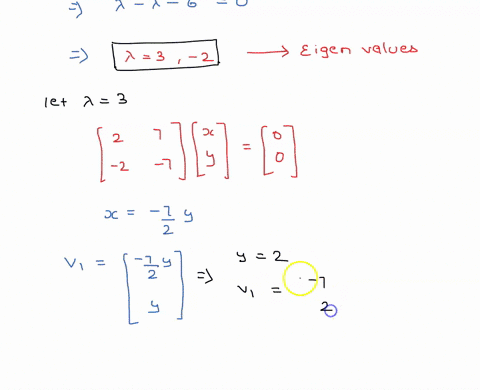 => λ - λ - 6 = 0
=> λ = 3 , -2 → Eigen values
let λ = 3
[ 2 7 ] [ x ] = [ 0 ]
[ -2 -7 ] [ y ] [ 0 ]
x = -7/2 y
V₁ = [ -7/2 y ] => y = 2
[ y ] V₁ = -7
2